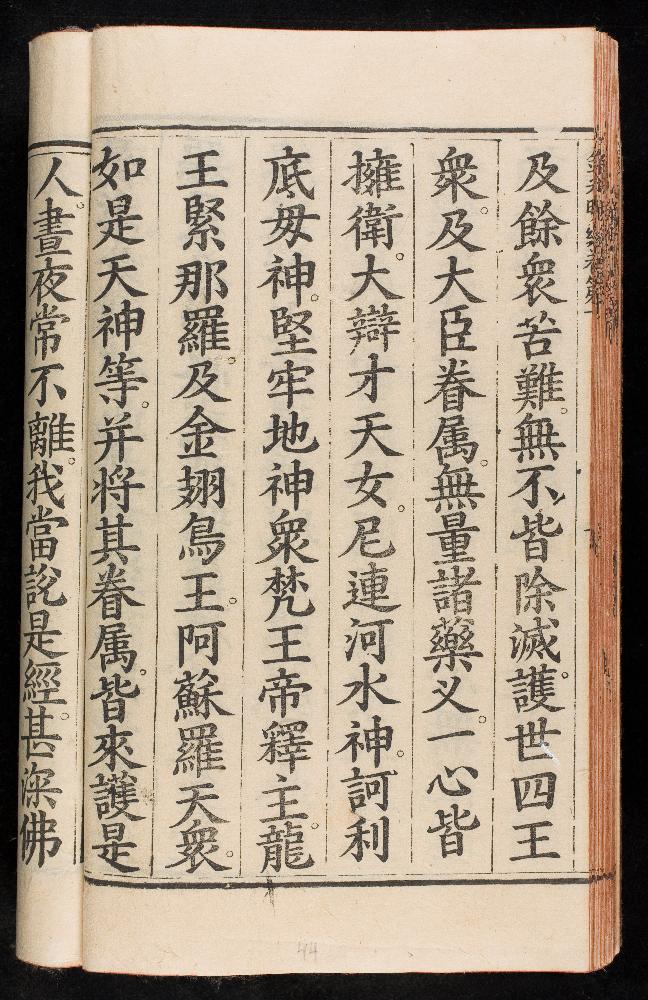 及餘衆苦難。無不皆除滅。護世四王
衆。及大臣眷属。無量諸藥义。一心皆
擁衛。大辯才天女。尼連河水神。訶利
底毋神。堅牢地神衆。梵王帝釋主。龍
王緊那羅。及金翅鳥王。阿蘇羅天衆。
如是天神等。并将其眷属。皆來護是
人。晝夜常不離。我當說是經。甚深佛
44